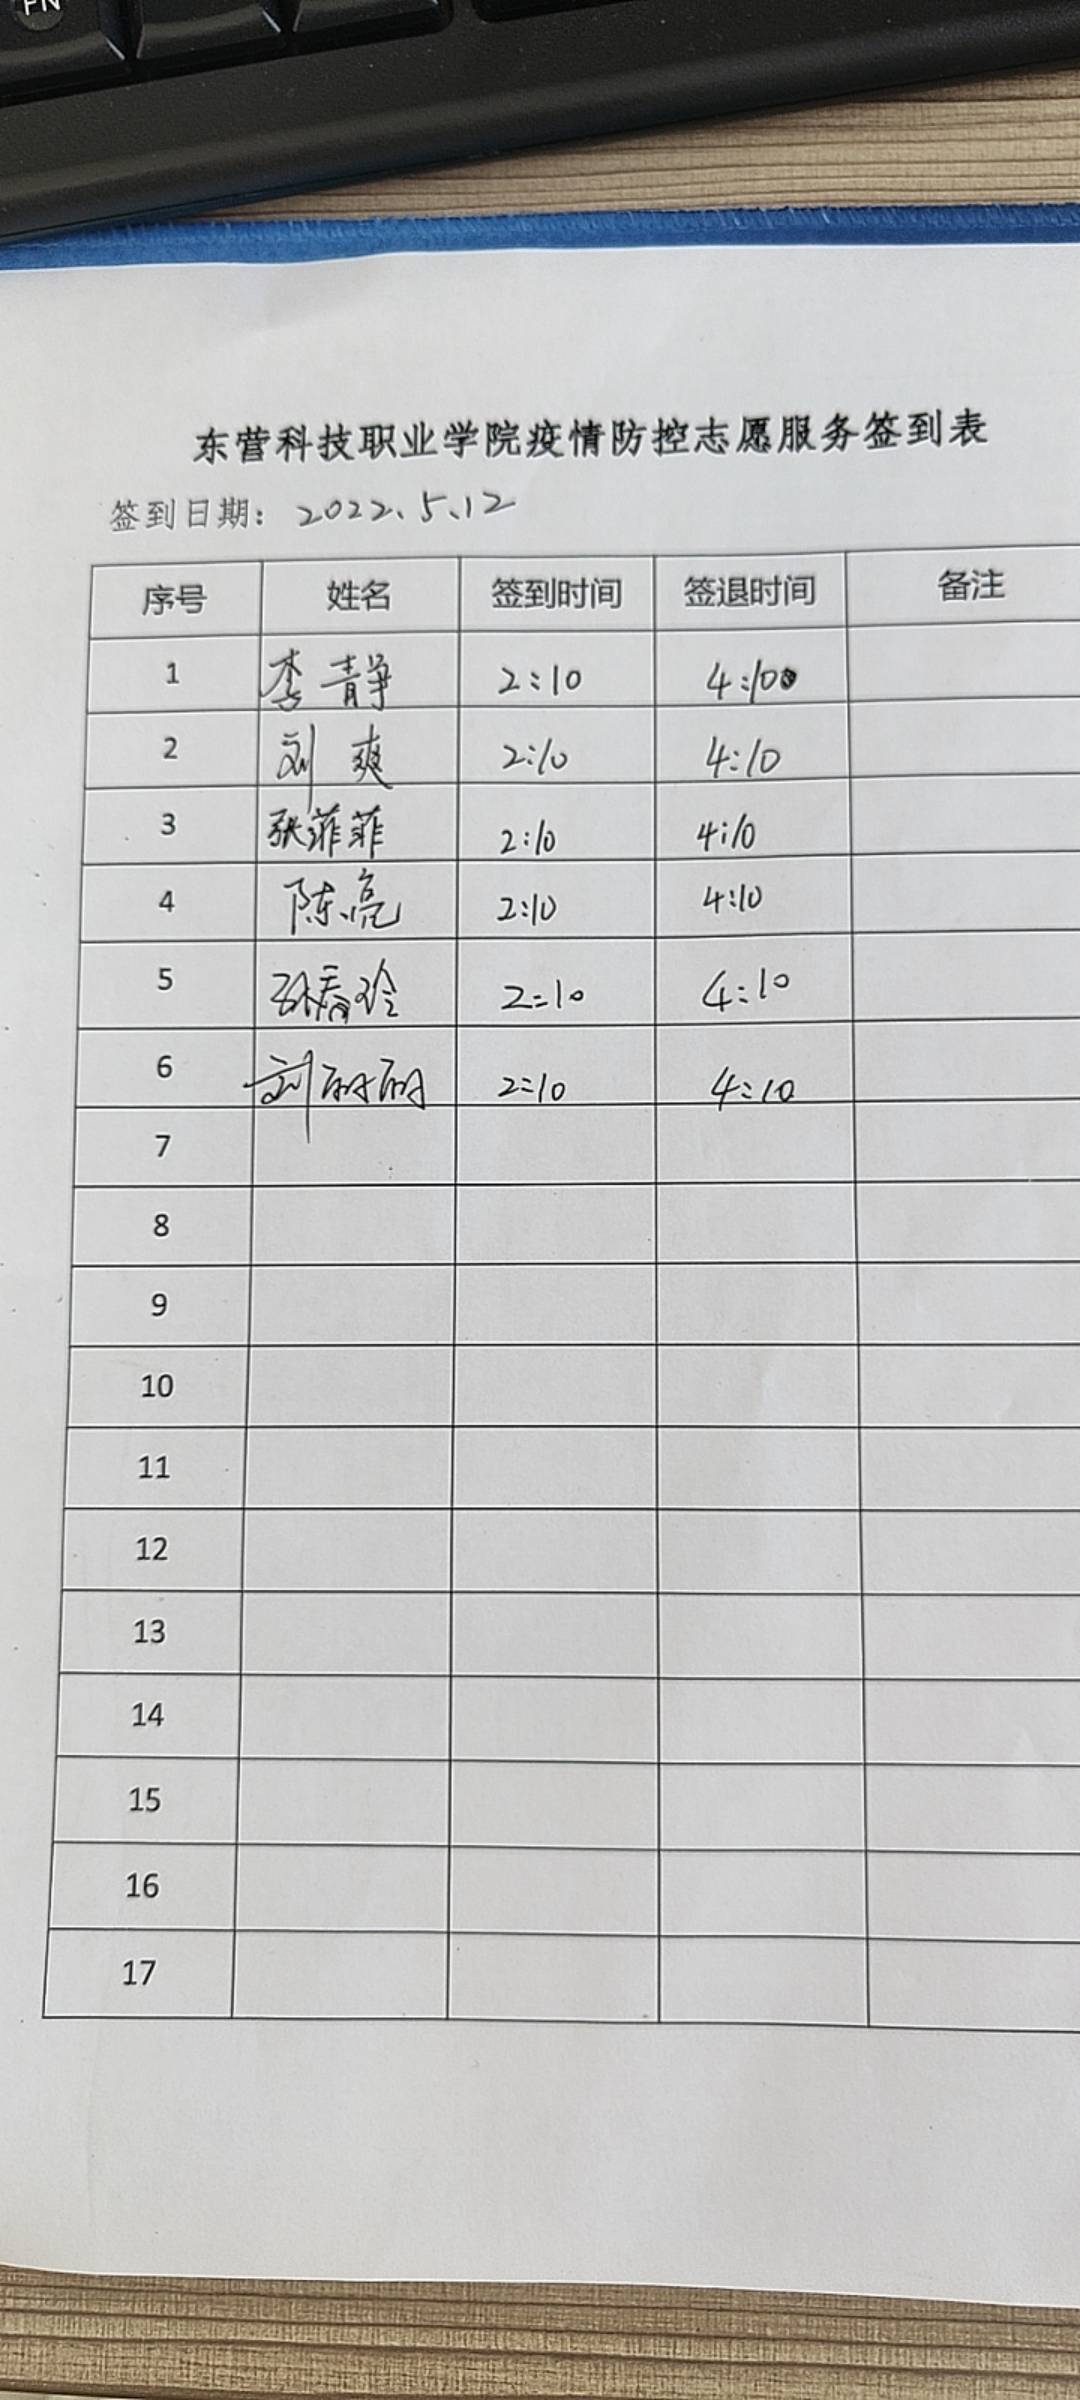 FN
东营科技职业学院疫情防控志愿服务签到表
签到日期：2022.5.12
序号 姓名 签到时间 签退时间 备注
1 李青静 2:10 4:10
2 刘爽 2:10 4:10
3 张菲菲 2:10 4:10
4 陈亮 2:10 4:10
5 孙春玲 2:10 4:10
6 刘丽丽 2:10 4:10
7
8
9
10
11
12
13
14
15
16
17